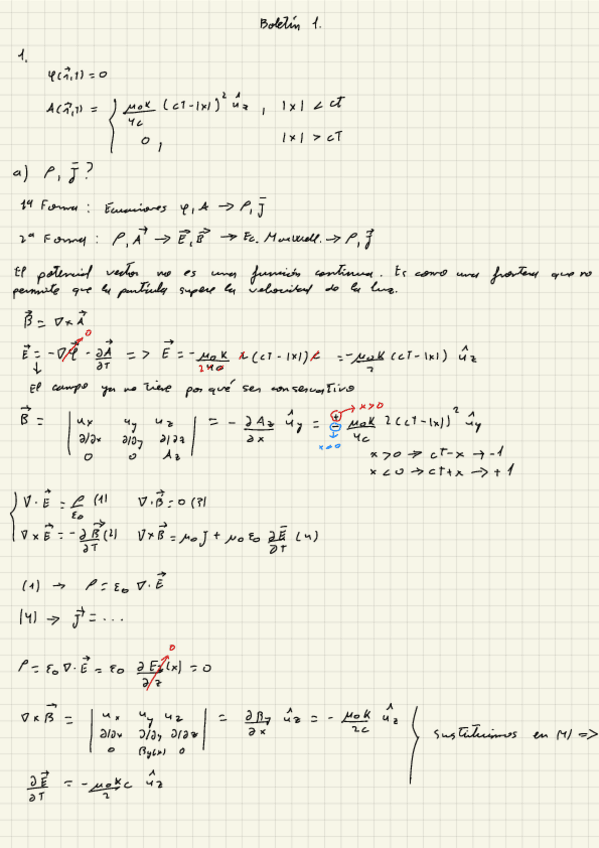 Boletín 1.
1.
φ(r⃗,t) = 0
A(r⃗,t) = { μ₀K/4c (cT-|x|)² û_z , |x| < cT
0 , |x| > cT
a) ρ, J⃗ ?
1ª Forma : Ecuaciones φ, A → ρ, J⃗
2ª Forma : ρ, A⃗ → E⃗, B⃗ → Ec. Maxwell. → ρ, J⃗
El potencial vector no es una función continua. Es como una frontera que no
permite que la partícula supere la velocidad de la luz.
B⃗ = ∇×A⃗
0
E⃗ = -∇φ - ∂A⃗/∂T => E⃗ = -μ₀K/24c 2(cT-|x|)c = -μ₀K/2 (cT-|x|) û_z
↓ El campo ya no tiene por qué ser conservativo
B⃗ = | u_x u_y u_z ; ∂/∂x ∂/∂y ∂/∂z ; 0 0 A_z | = -∂A_z/∂x û_y = ± μ₀K/4c 2(cT-|x|)² û_y
⊕ → x>0
⊖ → x<0
x>0 → cT-x → -1
x<0 → cT+x → +1
{ ∇·E⃗ = ρ/ε₀ (1) ∇·B⃗ = 0 (3)
∇×E⃗ = -∂B⃗/∂T (2) ∇×B⃗ = μ₀J + μ₀ε₀ ∂E⃗/∂T (4)
(1) → ρ = ε₀ ∇·E⃗
(4) → J⃗ = ...
0
ρ = ε₀∇·E⃗ = ε₀ ∂E_z(x)/∂z = 0
∇×B⃗ = | u_x u_y u_z ; ∂/∂x ∂/∂y ∂/∂z ; 0 B_y(x) 0 | = ∂B_y/∂x û_z = -μ₀K/2c û_z } sustituimos en (4) =>
∂E⃗/∂T = -μ₀K/2 c û_z